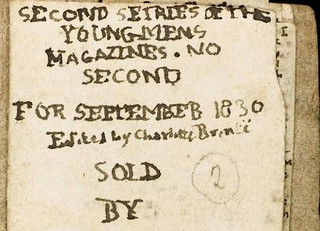 SECOND SETRIES OF THE
YOUNG MENS
MAGAZINES. NO
SECOND
FOR SEPTEMBER 1830
Edited by Charlotte Brontë
SOLD
BY
2